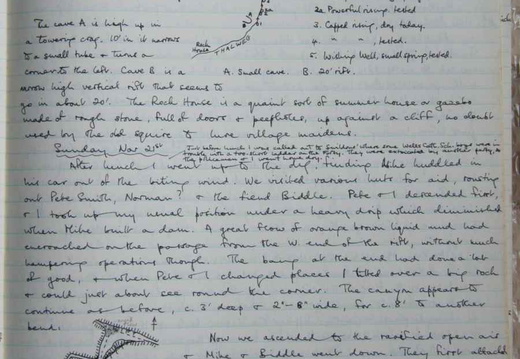 The cave A is high up in
a towering crag. 10' in it narrows
to a small tube & turns a
corner to the left. Cave B is a
narrow high vertical rift that seems to
go in about 20'. The Rock House is a quaint sort of summer house or gazebo
made of rough stone, full of doors & peepholes, up against a cliff, no doubt
used by the old squire to lure village maidens.
Rock House
THALWEG
A. Small cave. B. 20' rift.
2a. Powerful rising. tested
3. Capped rising, dry today.
4. " ", tested.
5. Withing Well, small spring, tested.
Sunday Nov 21st
Just before lunch I was called out to Swildons where some Wells Cath. Sch. boys were in
trouble with a too-short ladder on the Forty. They were extricated by another party, so
the policeman & I went home dry.
After lunch I went up to the dig, finding Ashe huddled in
his car out of the biting wind. We visited various huts for aid, rousting
out Pete Smith, Norman? & the fiend Biddle. Pete & I descended first,
& I took up my usual position under a heavy drip which diminished
when Mike built a dam. A great flow of orange brown liquid mud had
encroached on the passage from the W. end of the rift, without much
hampering operations though. The bang at the end had done a lot
of good, & when Pete & I changed places I lifted over a big rock
& could just about see round the corner. The canyon appears to
continue as before, c. 3' deep & 2"-6" wide, for c. 8' to another
bend.
Now we ascended to the rarefied open air
& Mike & Biddle went down. They first attacked